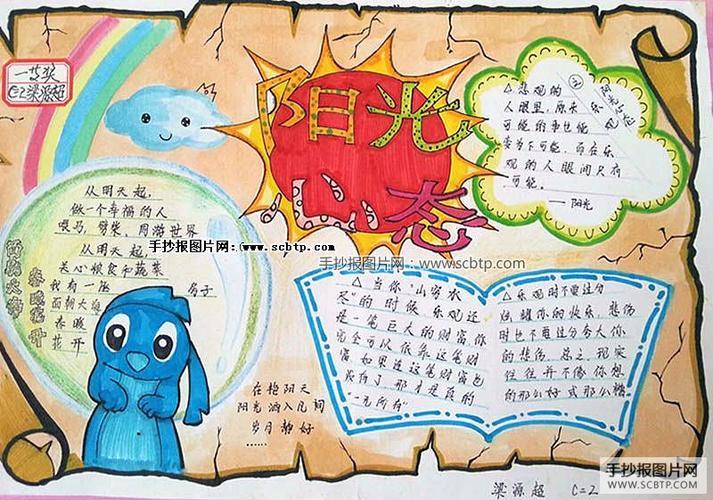 一等奖
C=2 梁源超
阳光
心态
从明天起，
做一个幸福的人
喂马，劈柴，周游世界
从明天起，
关心粮食和蔬菜
我有一座 房子
面朝大海
春暖
花开
面朝大海
春暖花开
手抄报图片网：www.scbtp.com
△悲观的
人眼里，原来
可能的事也能
变为不可能，而在乐
观的人眼间只有
可能。
——阳光
手抄报图片网：www.scbtp.com
△当你“山穷水
尽”的时候，乐观还
是一笔巨大的财富，你
完全可以依靠这笔财
富，如果连这笔财富也
没有了，那才是真的
“一无所有”
△乐观时不要过分
炫耀你的快乐，悲伤
时也不要过分夸大你
的悲伤，总之，现实
往往并不像你想
的那么好或那么糟
在艳阳天
阳光洒入几间
岁月静好
……
梁源超 C=2
手抄报图片网
WWW.SCBTP.COM